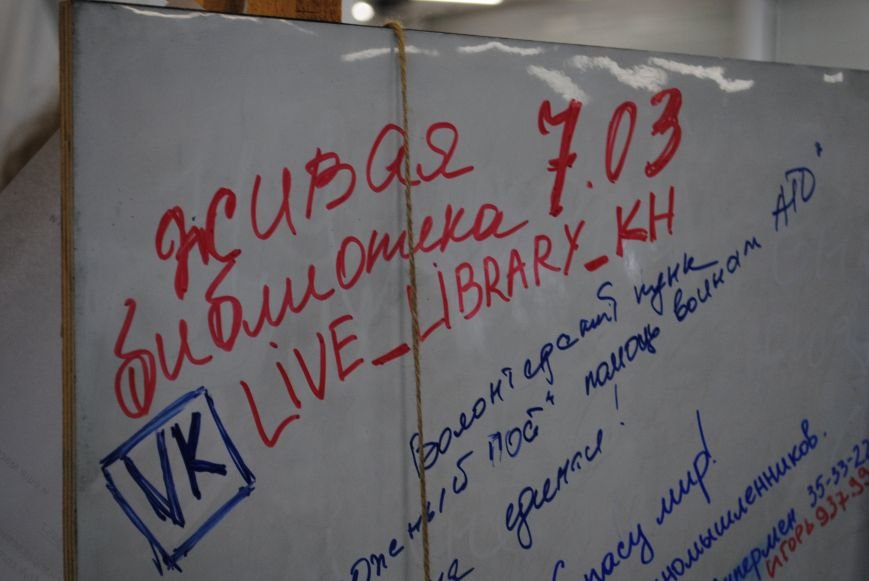 живая 7.03
библиотека
LIVE_LIBRARY_KH
VK
Волонтерский пункт
помощь воинам АТО"
единая!
спасу мир!
номышленников.
пермен 35-33-22
ИГОРЬ 937-99